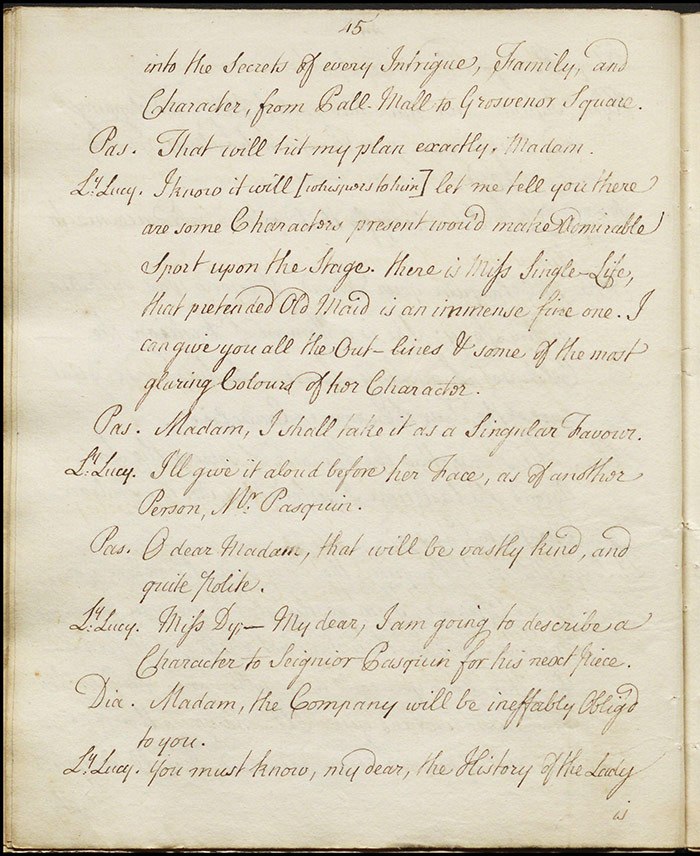 45
into the Secrets of every Intrigue, Family, and
Character, from Pall-Mall to Grosvenor Square.
Pas. That will hit my plan exactly, Madam.
Ly. Lucy. I know it will [whispers to him] let me tell you there
are some Characters present wou'd make Admirable
Sport upon the Stage. there is Miss Single-Life,
that pretended Old Maid is an immense fine one. I
can give you all the Out-lines & some of the most
glaring Colours of her Character.
Pas. Madam, I shall take it as a Singular Favour.
Ly. Lucy. I'll give it aloud before her Face, as of another
Person, Mr. Pasquin.
Pas. O dear Madam, that will be vastly kind, and
quite polite.
Ly. Lucy. Miss Dy,— My dear, I am going to describe a
Character to Seignior Pasquin for his next piece.
Dia. Madam, the Company will be ineffably Oblig'd
to you.
Ly. Lucy. You must know, my dear, the History of the Lady
is